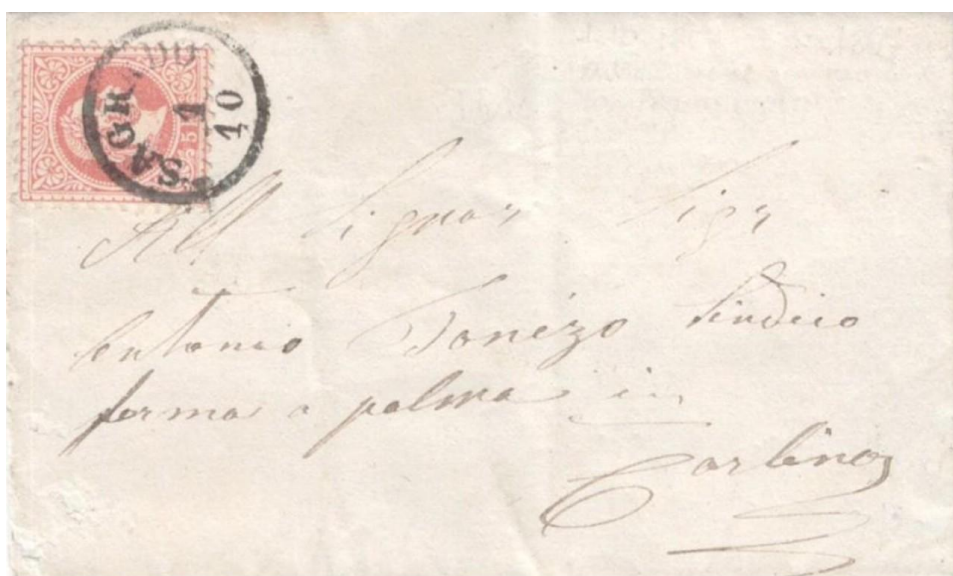 SAGRADO
1
10
5
All Signor Sigr
Antonio Tonizzo Sindico
ferma a palma in
Carlino